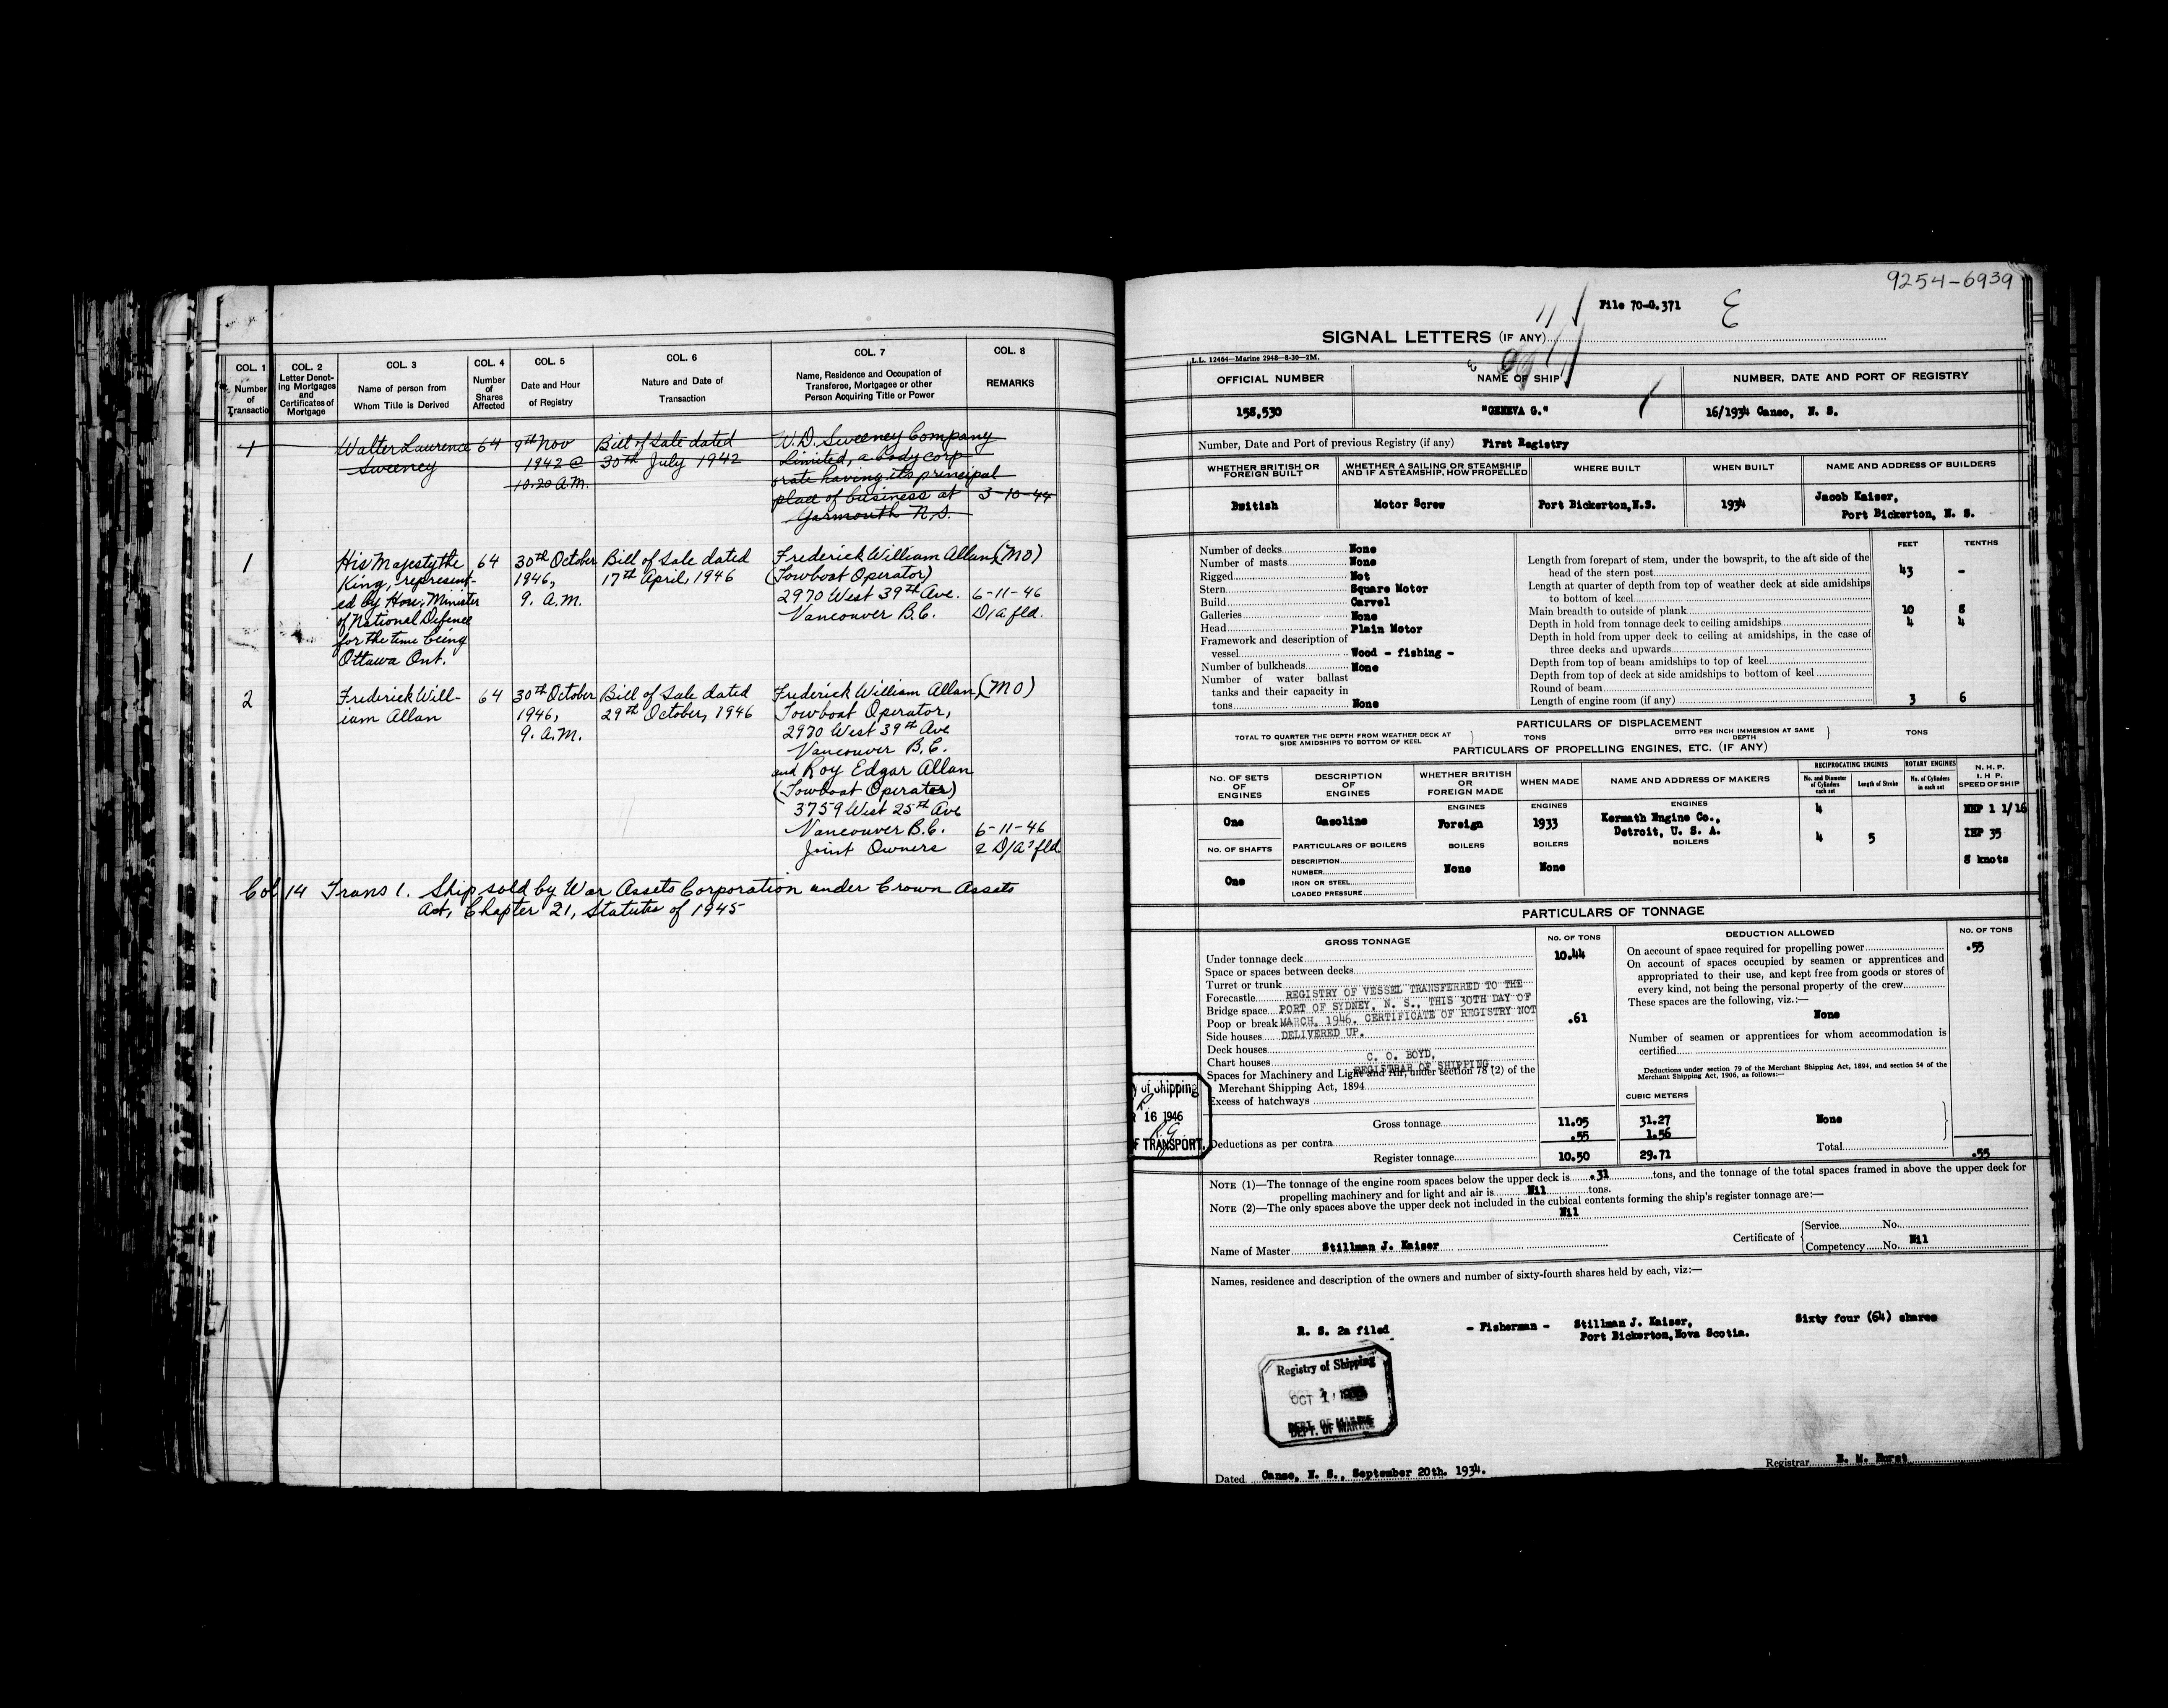 COL. 1 COL. 2 COL. 3 COL. 4 COL. 5 COL. 6 COL. 7 COL. 8
Number of Transaction
Letter Denoting Mortgages and Certificates of Mortgage
Name of person from Whom Title is Derived
Number of Shares Affected
Date and Hour of Registry
Nature and Date of Transaction
Name, Residence and Occupation of Transferee, Mortgagee or other Person Acquiring Title or Power
REMARKS
1 Walter Laurence 64 9th Nov Bill of Sale dated W. D. Sweeney Company
Sweeney 1942 @ 30th July 1942 Limited, a body corp
10.20 A.M. orate having its principal
place of business at 3-10-44
Yarmouth N.S.
1 His Majesty the 64 30th October Bill of Sale dated Frederick William Allan, (MO)
King, represent- 1946, 17th April, 1946 (Towboat Operator)
ed by Hon. Minister 9. A.M. 2970 West 39th Ave. 6-11-46
of National Defence Vancouver B.C. D/a fld.
for the time being
Ottawa Ont.
2 Frederick Will- 64 30th October Bill of Sale dated Frederick William Allan, (MO)
iam Allan 1946, 29th October, 1946 Towboat Operator,
9. A.M. 2970 West 39th Ave
Vancouver B.C.
and Roy Edgar Allan
(Towboat Operator)
3759 West 25th Ave
Vancouver B.C. 6-11-46
Joint Owners 2 D/a's fld
Col 14 Trans 1. Ship sold by War Assets Corporation under Crown Assets
Act, Chapter 21, Statutes of 1945
9254-6939
File 70-G.371
SIGNAL LETTERS (IF ANY)
L.L. 12464—Marine 2948—8-30—2M.
OFFICIAL NUMBER NAME OF SHIP NUMBER, DATE AND PORT OF REGISTRY
"GENEVA G." 16/1934 Canso, N. S.
Number, Date and Port of previous Registry (if any) First Registry
WHETHER BRITISH OR FOREIGN BUILT
WHETHER A SAILING OR STEAMSHIP AND IF A STEAMSHIP, HOW PROPELLED
WHERE BUILT WHEN BUILT NAME AND ADDRESS OF BUILDERS
British Motor Screw Port Bickerton,N.S. 1934 Jacob Kaiser,
Port Bickerton, N. S.
Number of decks None
Number of masts None
Rigged Not
Stern Square Motor
Build Carvel
Galleries None
Head Plain Motor
Framework and description of
vessel Wood - fishing -
Number of bulkheads None
Number of water ballast
tanks and their capacity in
tons None
FEET TENTHS
Length from forepart of stem, under the bowsprit, to the aft side of the
head of the stern post 43 -
Length at quarter of depth from top of weather deck at side amidships
to bottom of keel
Main breadth to outside of plank 10 8
Depth in hold from tonnage deck to ceiling amidships 4 4
Depth in hold from upper deck to ceiling at amidships, in the case of
three decks and upwards
Depth from top of beam amidships to top of keel
Depth from top of deck at side amidships to bottom of keel
Round of beam
Length of engine room (if any) 3 6
PARTICULARS OF DISPLACEMENT
TOTAL TO QUARTER THE DEPTH FROM WEATHER DECK AT SIDE AMIDSHIPS TO BOTTOM OF KEEL TONS
DITTO PER INCH IMMERSION AT SAME DEPTH TONS
PARTICULARS OF PROPELLING ENGINES, ETC. (IF ANY)
NO. OF SETS OF ENGINES
DESCRIPTION OF ENGINES
WHETHER BRITISH OR FOREIGN MADE
WHEN MADE
NAME AND ADDRESS OF MAKERS
RECIPROCATING ENGINES
No. and Diameter of Cylinders each set
Length of Stroke
ROTARY ENGINES
No. of Cylinders in each set
N. H. P.
I. H. P.
SPEED OF SHIP
ENGINES ENGINES ENGINES
One Gasoline Foreign 1933 Kermath Engine Co., 4 NHP 1 1/16
Detroit, U. S. A. 4 5 IHP 35
8 knots
NO. OF SHAFTS PARTICULARS OF BOILERS BOILERS BOILERS BOILERS
One
DESCRIPTION
NUMBER None None
IRON OR STEEL
LOADED PRESSURE
PARTICULARS OF TONNAGE
GROSS TONNAGE NO. OF TONS DEDUCTION ALLOWED NO. OF TONS
Under tonnage deck 10.44
Space or spaces between decks
Turret or trunk
Forecastle
Bridge space
Poop or break .61
Side houses
Deck houses
Chart houses
REGISTRY OF VESSEL TRANSFERRED TO THE
PORT OF SYDNEY, N. S., THIS 30TH DAY OF
MARCH, 1946. CERTIFICATE OF REGISTRY NOT
DELIVERED UP.
C. O. BOYD,
REGISTRAR OF SHIPPING.
Spaces for Machinery and Light and Air, under section 78 (2) of the
Merchant Shipping Act, 1894
Excess of hatchways
Gross tonnage 11.05 31.27
Deductions as per contra .55 1.56
Register tonnage 10.50 29.71
CUBIC METERS
On account of space required for propelling power .55
On account of spaces occupied by seamen or apprentices and
appropriated to their use, and kept free from goods or stores of
every kind, not being the personal property of the crew
These spaces are the following, viz.:—
None
Number of seamen or apprentices for whom accommodation is
certified
Deductions under section 79 of the Merchant Shipping Act, 1894, and section 54 of the
Merchant Shipping Act, 1906, as follows:—
None
Total .55
y of Shipping
16 1946
F TRANSPORT.
NOTE (1)—The tonnage of the engine room spaces below the upper deck is .31 tons, and the tonnage of the total spaces framed in above the upper deck for
propelling machinery and for light and air is Nil tons.
NOTE (2)—The only spaces above the upper deck not included in the cubical contents forming the ship's register tonnage are:—
Nil
Name of Master Stillman J. Kaiser
Certificate of Service No.
Competency No. Nil
Names, residence and description of the owners and number of sixty-fourth shares held by each, viz:—
R. S. 2a filed - Fisherman - Stillman J. Kaiser, Sixty four (64) shares
Port Bickerton,Nova Scotia.
Registry of Shipping
OCT 1
DEPT. OF MARINE
Dated Canso, N. S., September 20th. 1934.
Registrar